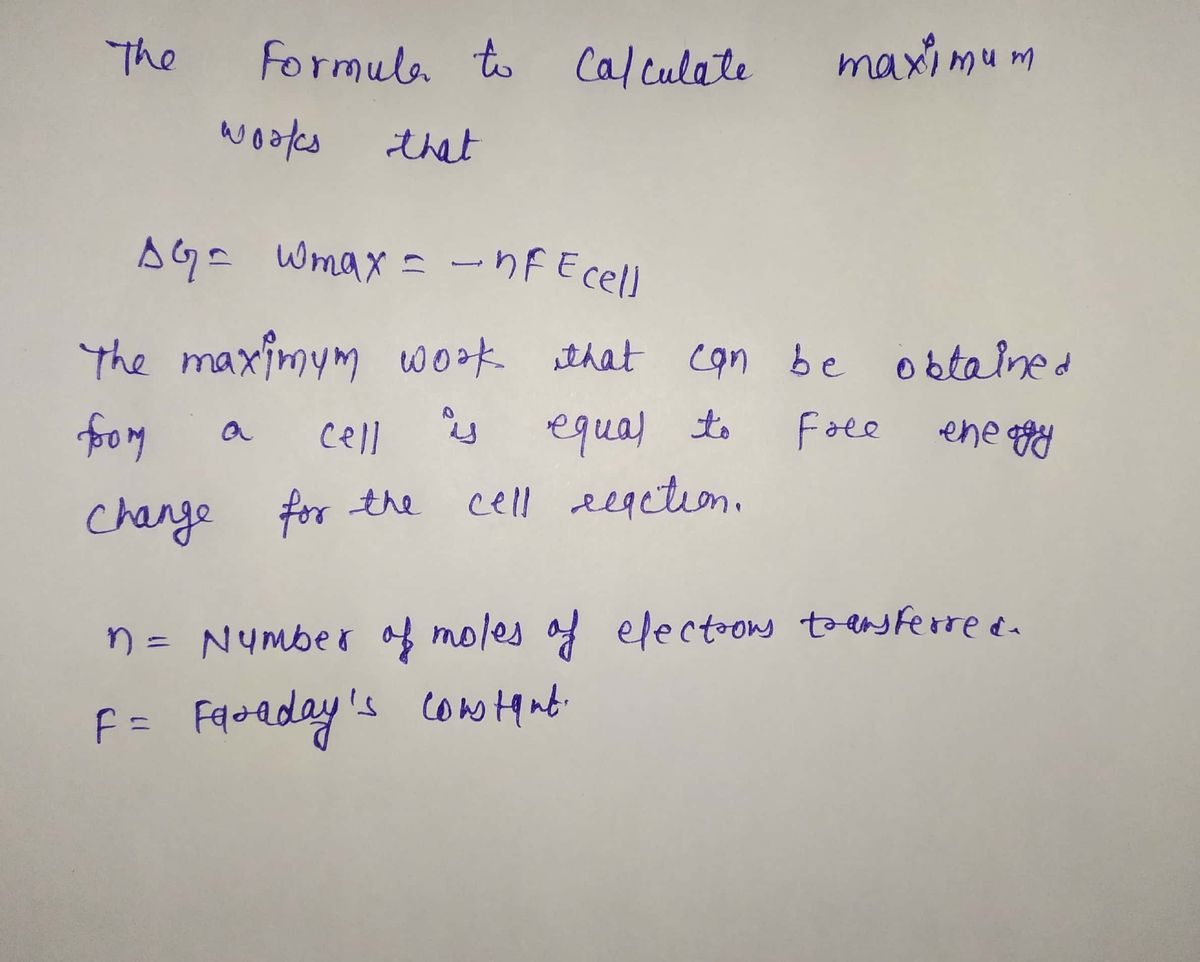 The Formula to Calculate maximum
works that
ΔG = Wmax = -nFEcell
The maximum work that can be obtained
from a cell is equal to Free energy
Change for the cell reaction.
n = Number of moles of electrons transferred.
F = Faraday's constant.